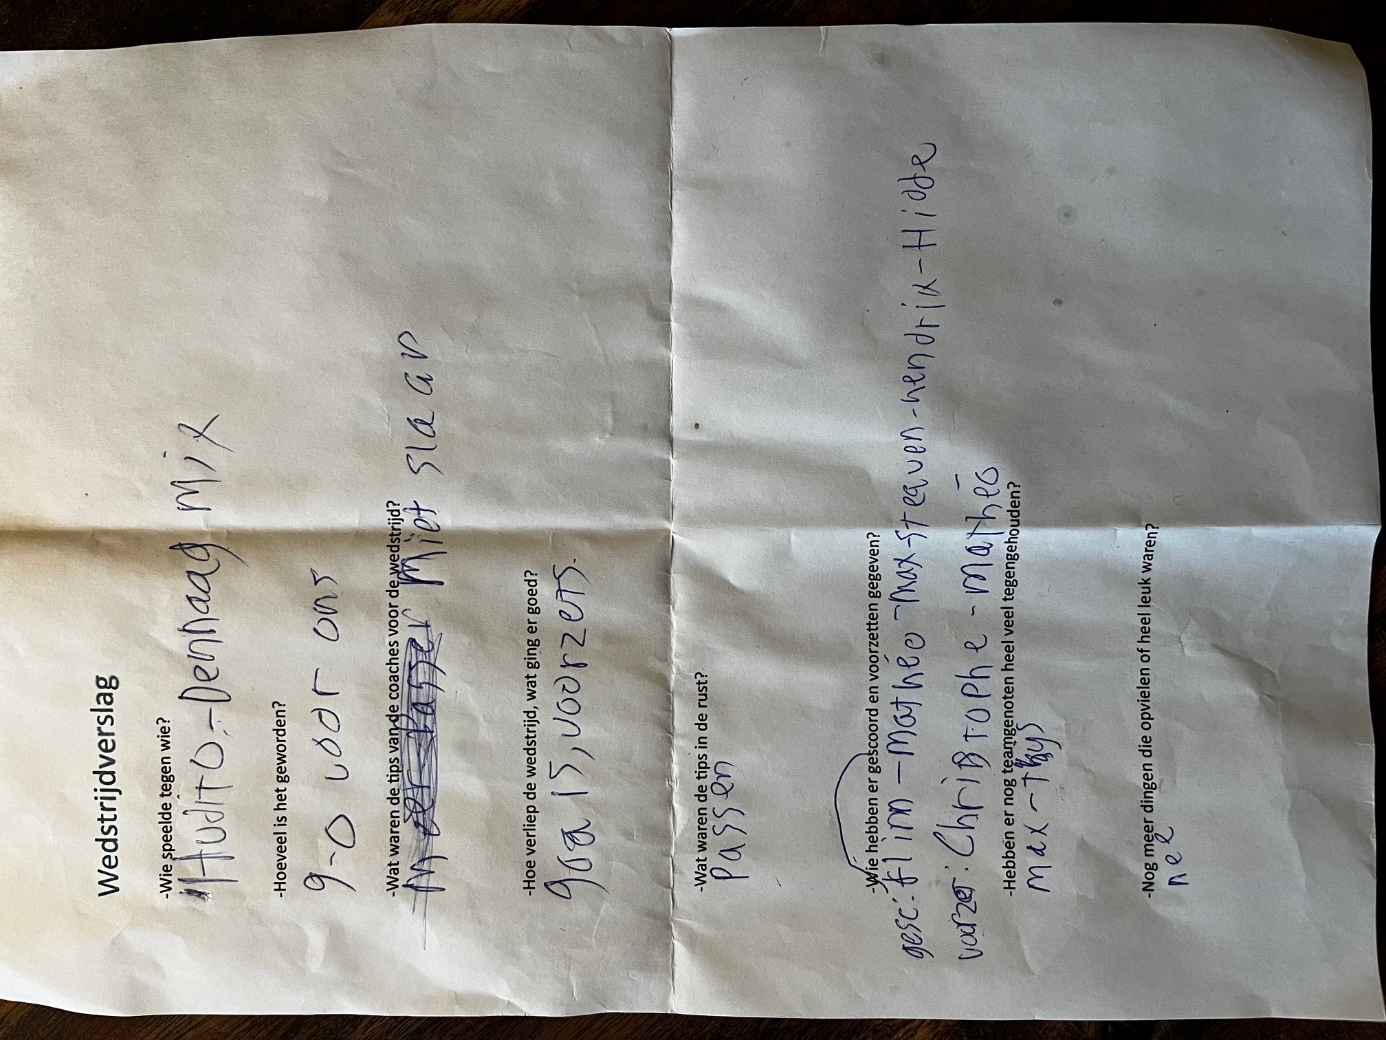 Wedstrijdverslag
-Wie speelde tegen wie?
Hudito-Denhaag Mix
-Hoeveel is het geworden?
9-0 voor ons
-Wat waren de tips van de coaches voor de wedstrijd?
niet slaan
-Hoe verliep de wedstrijd, wat ging er goed?
goals, voorzets.
-Wat waren de tips in de rust?
Passen
-Wie hebben er gescoord en voorzetten gegeven?
gesc: -mathéo-max-steaven-hendrix-Hidde
voorzet: Christophe-mathéo
-Hebben er nog teamgenoten heel veel tegengehouden?
max-Thijs
-Nog meer dingen die opvielen of heel leuk waren?
nee